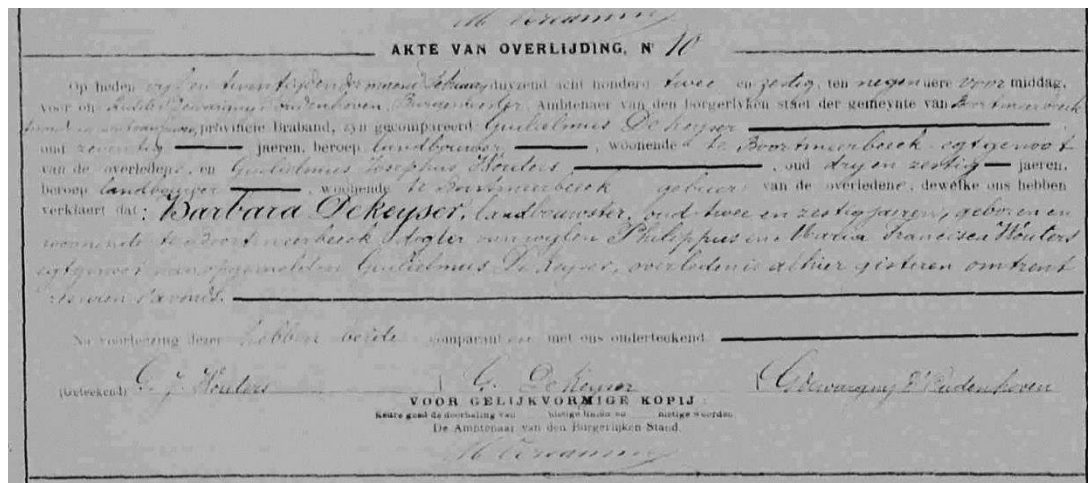 AKTE VAN OVERLIJDING, N° 10
Op heden vyf en twintigsten der maend february duyzend acht hondert twee en zestig, ten negen uere voor middag,
voor ons Burgemeester, Ambtenaer van den borgerlyken staet der gemeynte van Boortmeerbeek
provincie Braband, zyn gecompareerd Guilielmus De Keyser
oud zeventig jaeren, beroep landbouwer, woonende te Boortmeerbeek egtgenoot
van de overledene, en Guilielmus Josephus Wouters, oud dry en zestig jaeren,
beroep landbouwer, woonende te Boortmeerbeek gebuer van de overledene, dewelke ons hebben
verklaert dat: Barbara Dekeyser, landbouwster, oud twee en zestig jaeren, geboren en
woonende te Boortmeerbeek, dogter van wylen Philippus en Maria Francisca Wouters
egtgenoot van opgemelden Guilielmus De Keyser, overleden is alhier gisteren omtrent
uren s'avonds.
Na voorleezing dezer hebben beide comparanten met ons onderteekend
(Geteekend) G. J. Wouters G. De Keyser
VOOR GELIJKVORMIGE KOPIJ:
Keure goed de doorhaling van nietige linien en nietige woorden
De Ambtenaar van den Burgerlijken Stand.